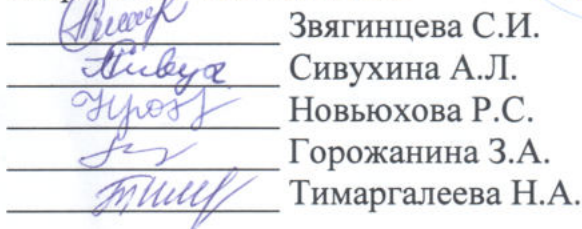 Звягинцева С.И.
Сивухина А.Л.
Новьюхова Р.С.
Горожанина З.А.
Тимаргалеева Н.А.